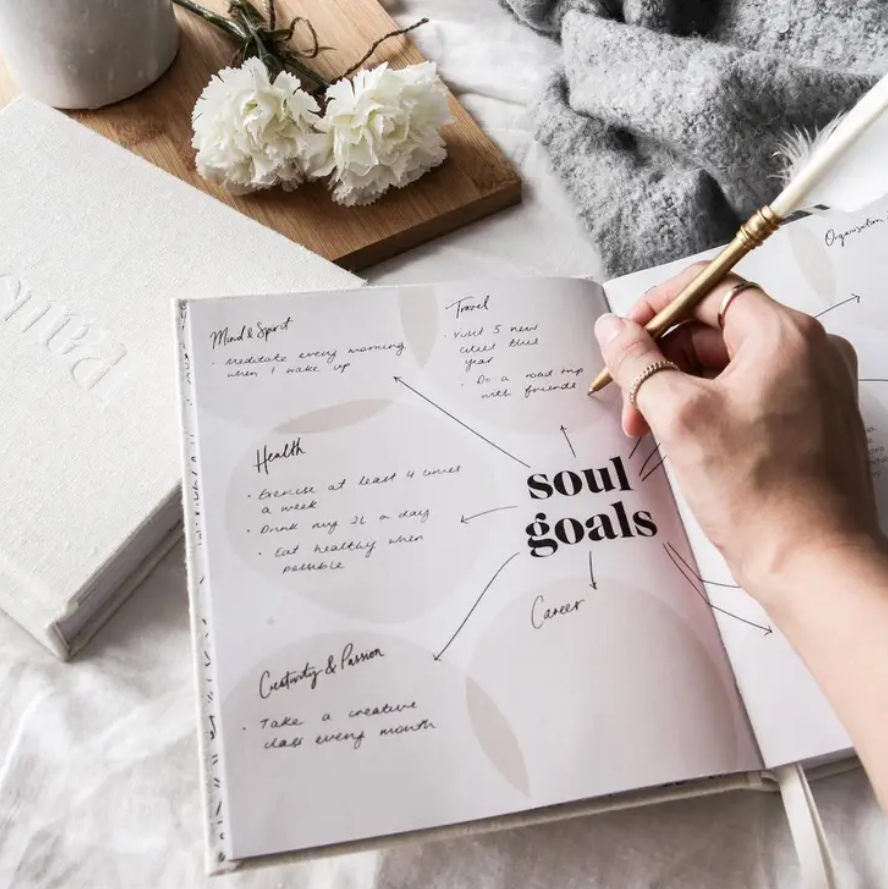 Mind & Spirit
· Meditate every morning
when I wake up
Travel
· Visit 5 new
cities this
year
· Do a road trip
with friends
Health
· Exercise at least 4 times
a week
· Drink my 2L a day
· Eat healthy when
possible
soul
goals
Creativity & Passion
· Take a creative
class every month
Career
Organisation